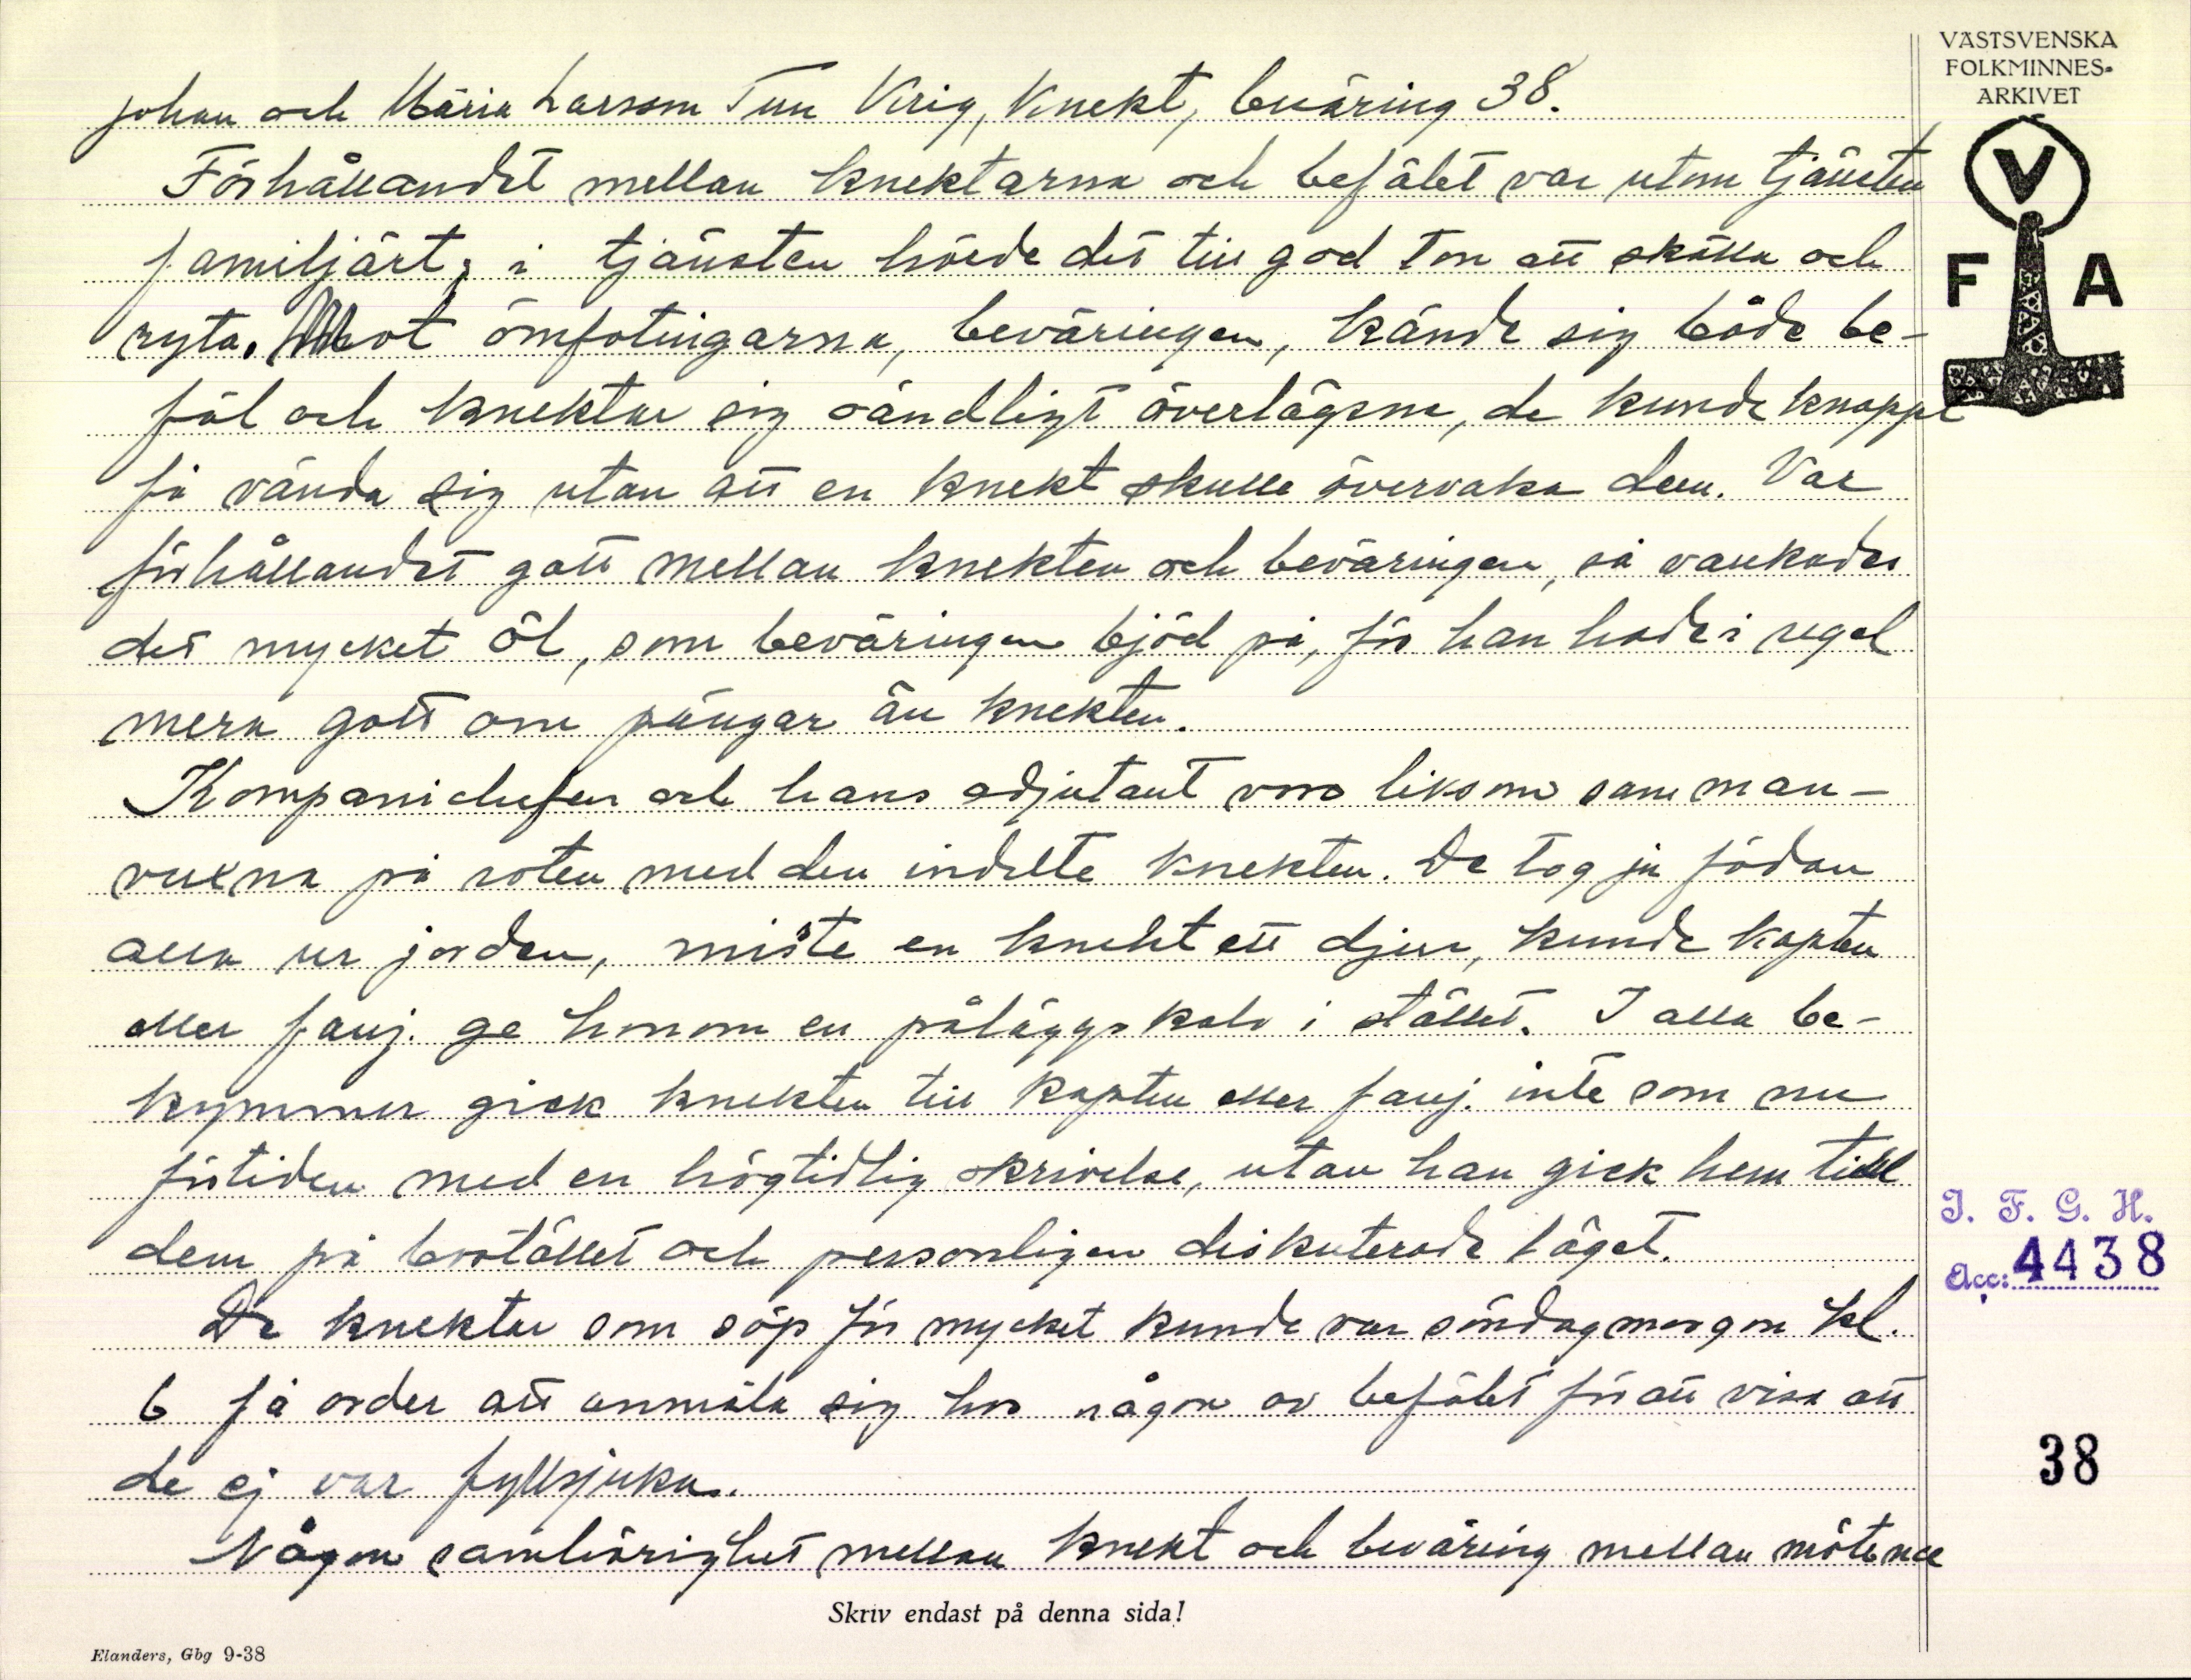 VÄSTSVENSKA
FOLKMINNES-
ARKIVET
V
F A
Johan och Maria Larsson Tun Krig, Knekt, beväring 38.
Förhållandet mellan knektarna och befälet var utom tjänsten
familjärt; i tjänsten hörde det till god ton att skälla och
ryta. Mot ömfotingarna, beväringen, kände sig både be-
fäl och knektar sig oändligt överlägsna, de kunde knappt
få vända sig utan att en knekt skulle övervaka dem. Var
förhållandet gott mellan knekten och beväringen, så vankades
det mycket öl, som beväringen bjöd på, för han hade i regel
mera gott om pängar än knekten.
Kompanichefen och hans adjutant voro liksom samman-
vuxna på roten med den indelte knekten. De tog ju födan
alla ur jorden, miste en knekt ett djur, kunde kapten
eller fanj. ge honom en påläggskalv i stället. I alla be-
kymmer gick knekten till kapten eller fanj. inte som nu
förtiden med en högtidlig skrivelse, utan han gick hem till
dem på bostället och personligen diskuterade läget.
De knektar som söp för mycket kunde var söndagmorgon kl.
6 få order att anmäla sig hos någon av befälet för att visa att
de ej var fyllsjuka.
Någon samhörighet mellan knekt och beväring mellan mötena
I. F. G. H.
Acc: 4438
38
Skriv endast på denna sida!
Elanders, Gbg 9-38